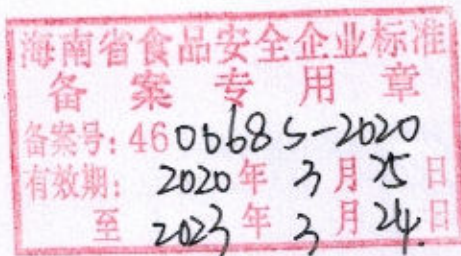 海南省食品安全企业标准
备案专用章
备案号: 460668S-2020
有效期: 2020年3月25日
至2023年3月24日